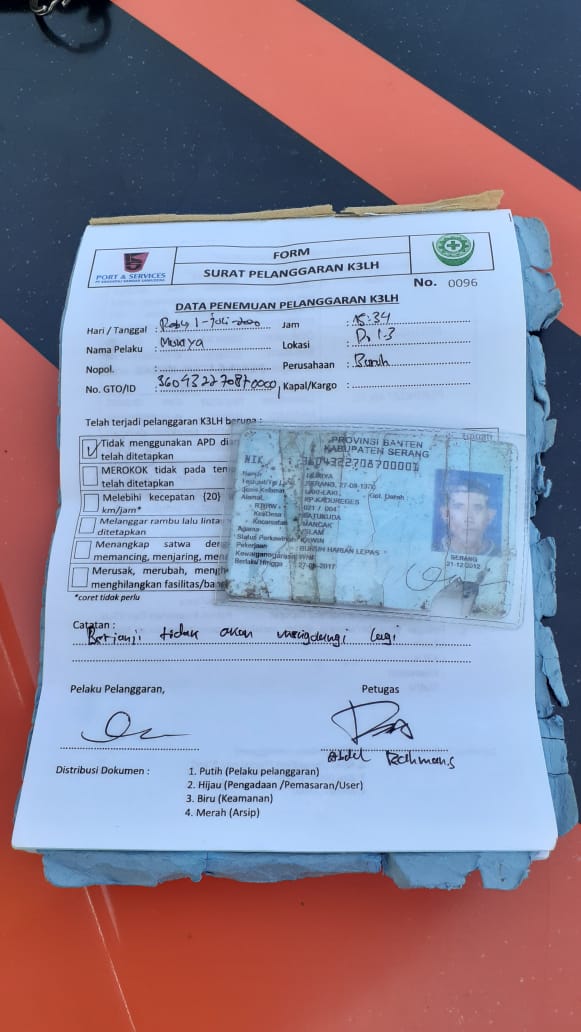 PORT & SERVICES
FORM
SURAT PELANGGARAN K3LH
No. 0096
DATA PENEMUAN PELANGGARAN K3LH
Hari / Tanggal : Rabu 1 - Juli - 200 Jam : 15:34
Nama Pelaku : Lokasi : D. 1-3
Nopol. : Perusahaan : Buruh
No. GTO/ID : Kapal/Kargo :
Telah terjadi pelanggaran K3LH berupa :
Tidak menggunakan APD
telah ditetapkan
MEROKOK tidak pada
telah ditetapkan
Melebihi kecepatan (20)
km/jam*
Melanggar rambu lalu
ditetapkan
Menangkap satwa
memancing, menjaring,
Merusak, merubah,
menghilangkan
*coret tidak perlu
PROVINSI BANTEN
KABUPATEN SERANG
NIK
Gol. Darah
LAKI-LAKI
KP KADUREGES
021 / 004
BATUKUDA
MANCAK
Agama ISLAM
Status Perkawinan KAWIN
Pekerjaan BURUH HARIAN LEPAS
Kewarganegaraan WNI
Berlaku Hingga 27-08-2017
SERANG
21-12-2012
Catatan :
Berjanji tidak akan mengulangi lagi
Pelaku Pelanggaran, Petugas
Abdul Rahman
Distribusi Dokumen : 1. Putih (Pelaku pelanggaran)
2. Hijau (Pengadaan /Pemasaran/User)
3. Biru (Keamanan)
4. Merah (Arsip)